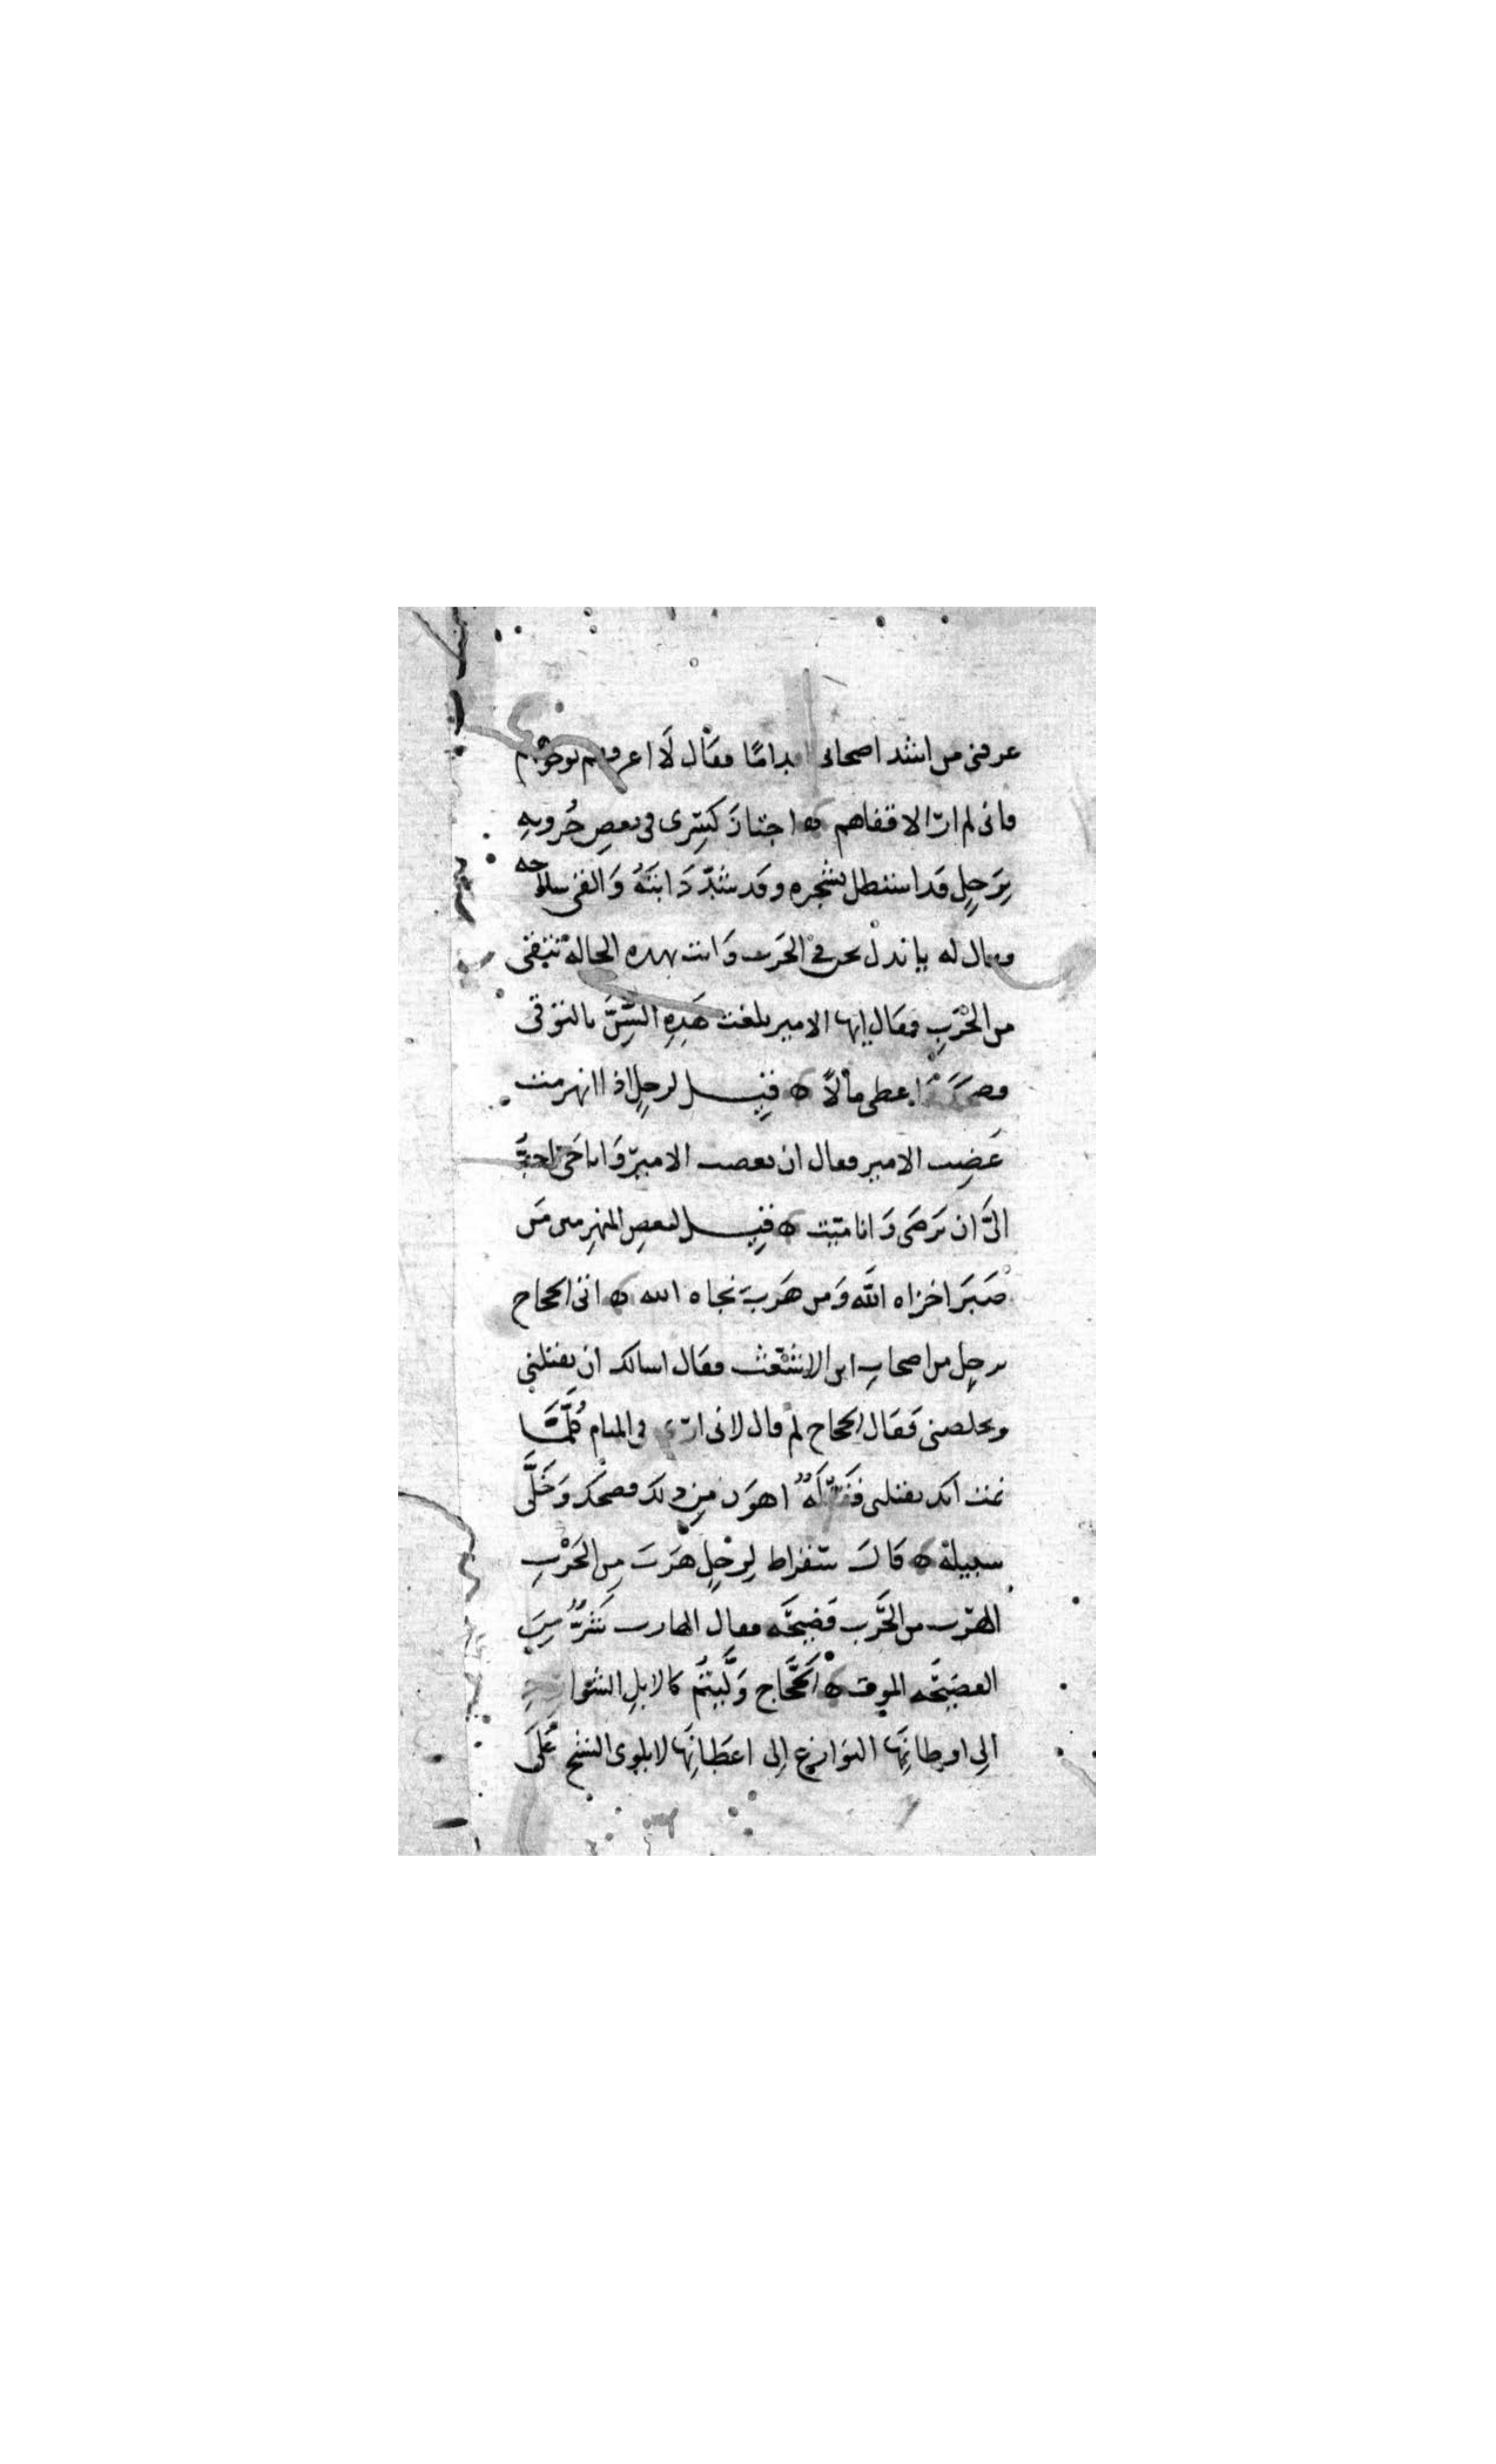 عرفنى من اشد اصحابى اقداما فقال لَا اعرفهم بوجوههم
فانى لم ار الا قفاهم ه اجتاز كِسْرى فى بعضِ حُروبهِ
بِرَجلٍ قد استظل بشجره وقد شدّ دَابتَهُ وَالقى سلاحه
وقال له يا نذل نحن فى الحَرب وَانت بهذه الحالة تتقى
من الحَرْبِ فقال ايها الامير بلغت هَذِهِ السِّنَّ بالتوقى
فضحك واعطى مالاً ه قيل لرجلٍ اذا انهزمت
غَضِب الامير فقال ان يغضب الامير وَانا حَى احبُّ
الىَّ ان يَرضَى وَانا ميت ه قيل لبعضِ المنهزِمين مَن
صَبَرَ اخزاه الله وَمن هَرب نجاه الله ه اتى الحجاج
برجلٍ من اصحابِ ابن الاشعث فقال اسالك ان تقتلنى
وتخلصنى فَقَال الحجاج لم قال لانى ارى فى المنام كُلَّمَا
نمت انك تقتلنى فَقتلَةٌ اهوَن مِن ذلك فضحك وَخَلَّى
سبيله ه قَالَ سقراط لِرَجلٍ هَرَبَ مِن الحَرْبِ
الهرب من الحَرب فَضيحَه فقال الهارب شَرٌّ مِنَ
الفضيحَه الموت ه الحَجَّاج وَلَّيتُم كالابلِ الشوارِدِ
الِى اوطانِهَا النوازع اِلى اعطَانِهَا لا يلوى الشيخ عَلَى